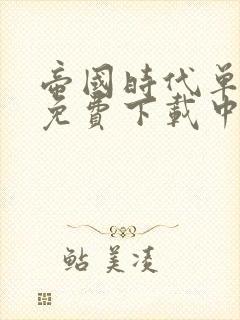 帝國時代单
免費下載中
鲇美凌